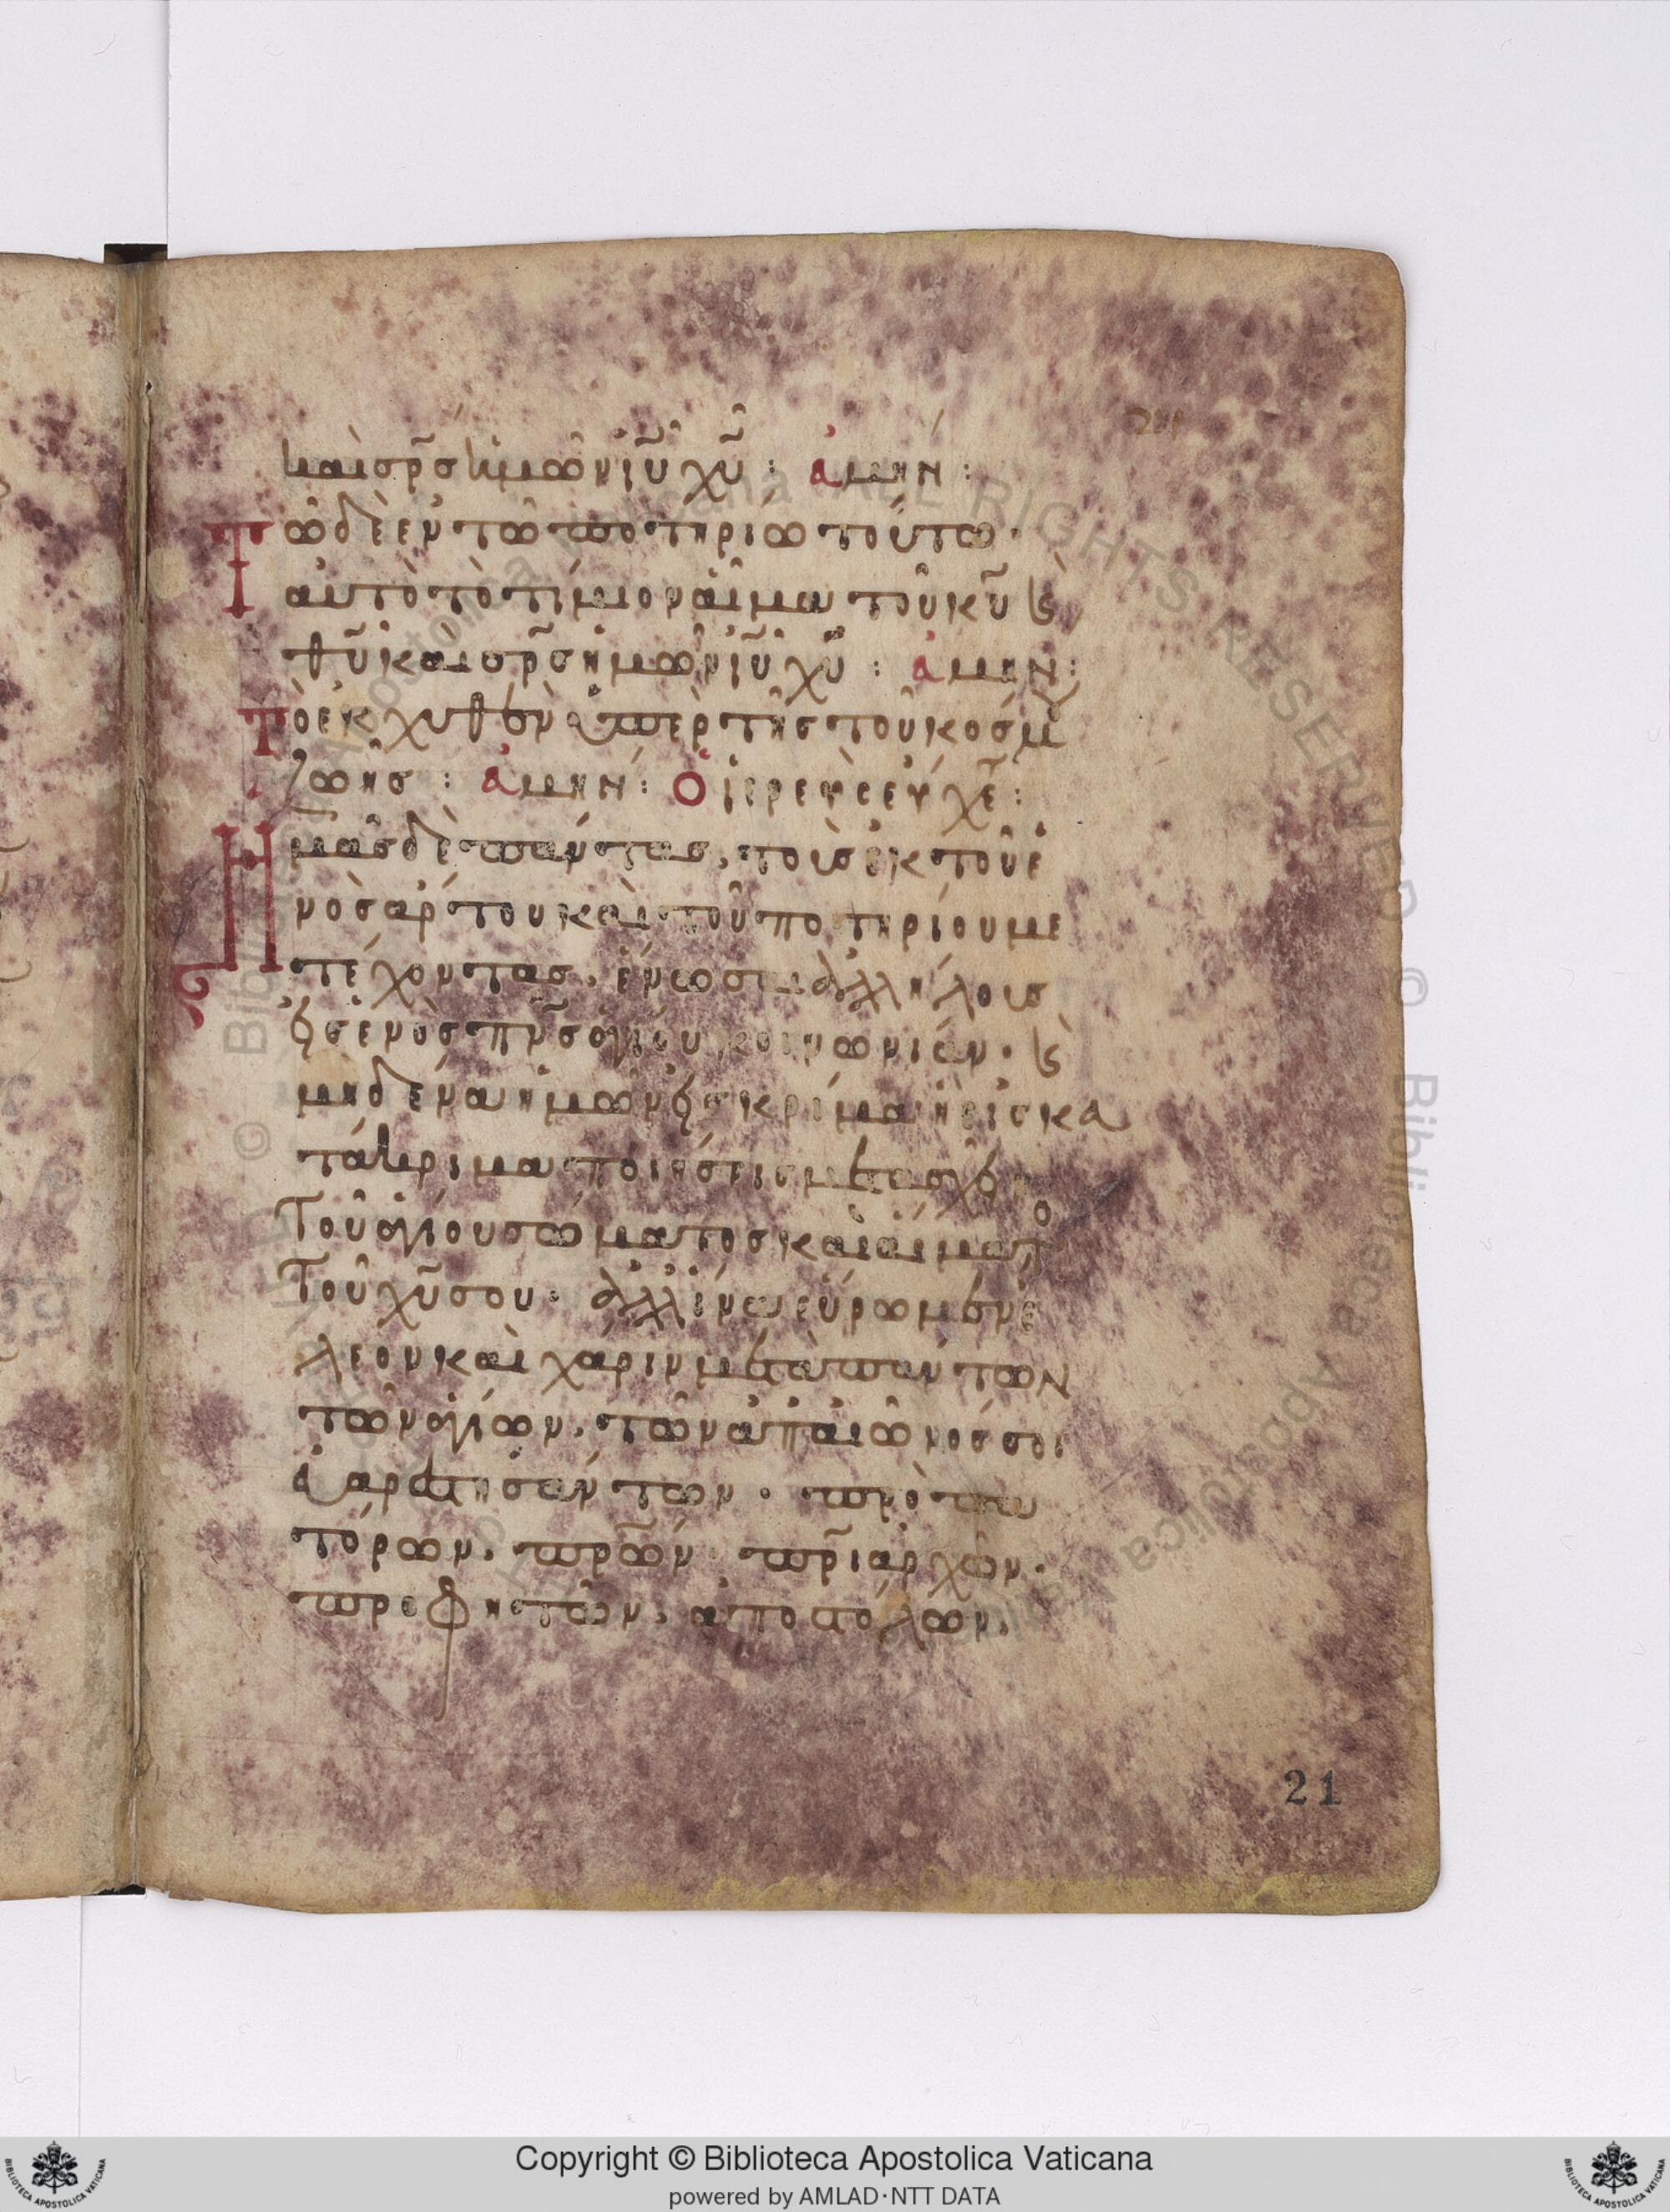 καὶ σρ̅σ ἡμῶν ιυ̅ χυ̅ : ἀμήν :
Τῶδὲ ἐν τῶ ποτηρίω τούτω ·
αὐτὸ τὸ τίμιον αἷμα τοῦ κυ̅ ϗ
θυ̅ καὶ σρ̅σ ἡμῶν ιυ̅ χυ̅ : ἀμήν :
Τὸ ἐκχυθὲν ὑπὲρ τῆς τοῦ κόσμου
ζωῆσ : ἀμήν : Ὁ ἱερεὺς εὐχε̅ :
Ἡμᾶσ δὲ πάντασ, τοὺσ ἐκ τοῦ ἑ
νὸσ ἄρτου καὶ τοῦ ποτηρίου με
τέχοντασ, ἑνῶσαι ἀλλήλοισ
εἰσ ἑνὸσ πνσ̅ ἁγίου κοινωνίαν · ϗ
μηδένα ἡμῶν εἰσ κρίμα ἢ εἰσ κα
τάκριμα ποιῆσαι μετασχεῖν
Τοῦ ἁγίου σώματοσ καὶ αἵματο
Τοῦ χυ̅ σου · ἀλλ' ἵνα εὕρωμεν ἔ
λεον καὶ χάριν μετὰ πάντων
τῶν ἁγίων, τῶν ἀπ' αἰῶνός σοι
εὐαρεστησάντων · προπα
τόρων, πρ̅ων πρ̅ιαρχῶν ·
προφητῶν, ἀποστόλων,
21
Copyright © Biblioteca Apostolica Vaticana
powered by AMLAD·NTT DATA